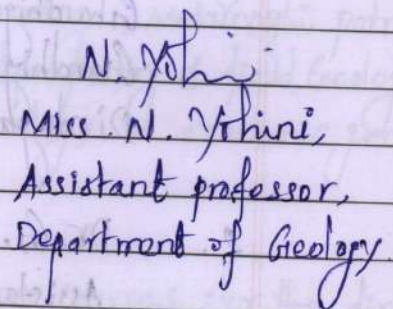 N. Yohini
Miss. N. Yohini,
Assistant professor,
Department of Geology.